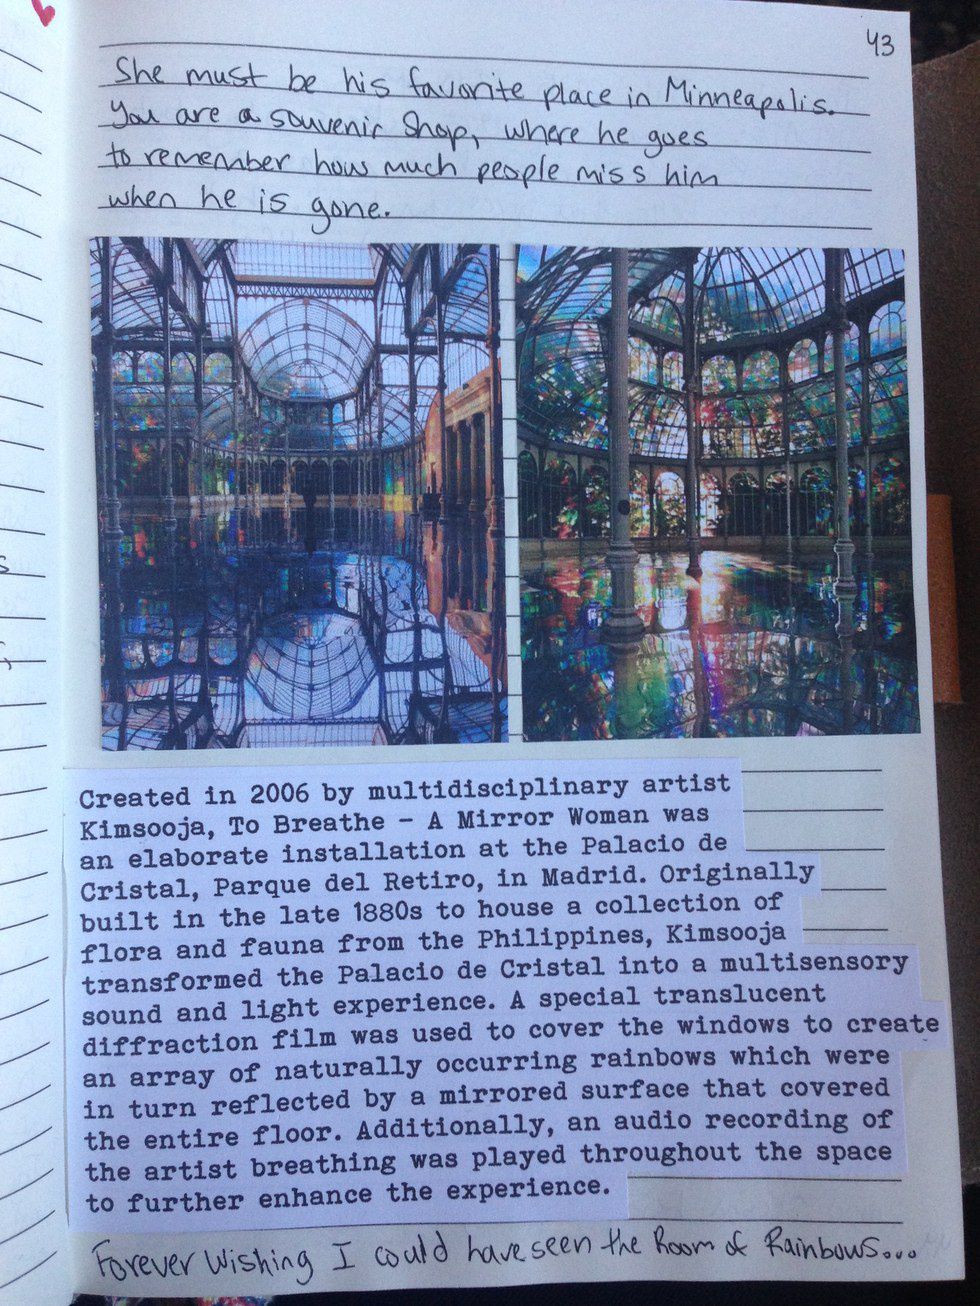 43
She must be his favorite place in Minneapolis.
You are a souvenir shop, where he goes
to remember how much people miss him
when he is gone.
Created in 2006 by multidisciplinary artist
Kimsooja, To Breathe – A Mirror Woman was
an elaborate installation at the Palacio de
Cristal, Parque del Retiro, in Madrid. Originally
built in the late 1880s to house a collection of
flora and fauna from the Philippines, Kimsooja
transformed the Palacio de Cristal into a multisensory
sound and light experience. A special translucent
diffraction film was used to cover the windows to create
an array of naturally occurring rainbows which were
in turn reflected by a mirrored surface that covered
the entire floor. Additionally, an audio recording of
the artist breathing was played throughout the space
to further enhance the experience.
Forever Wishing I could have seen the Room of Rainbows...